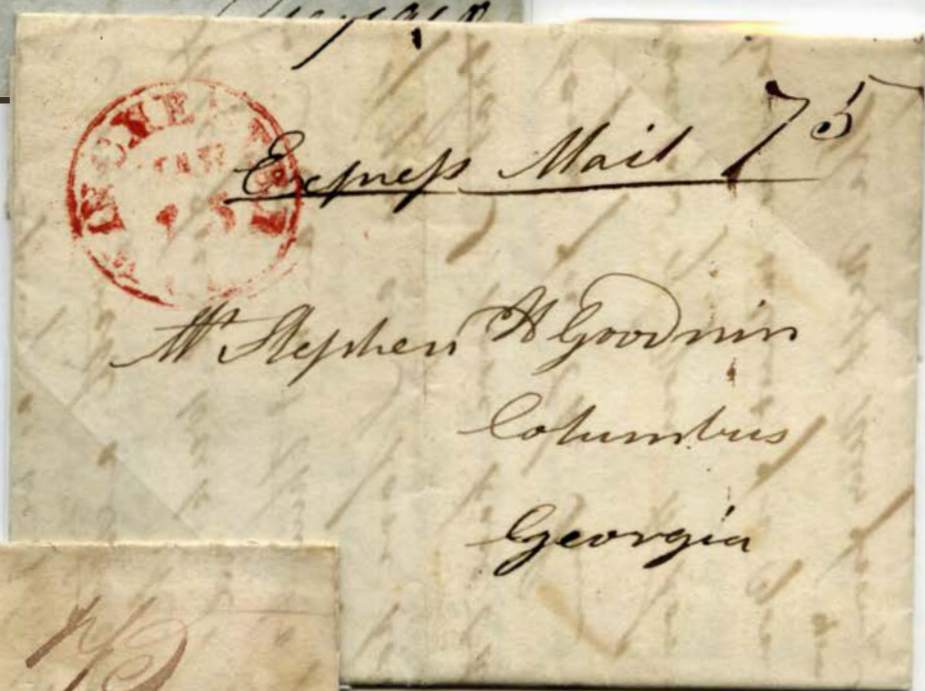 Express Mail 75
Mr Stephen A Goodwin
Columbus
Georgia